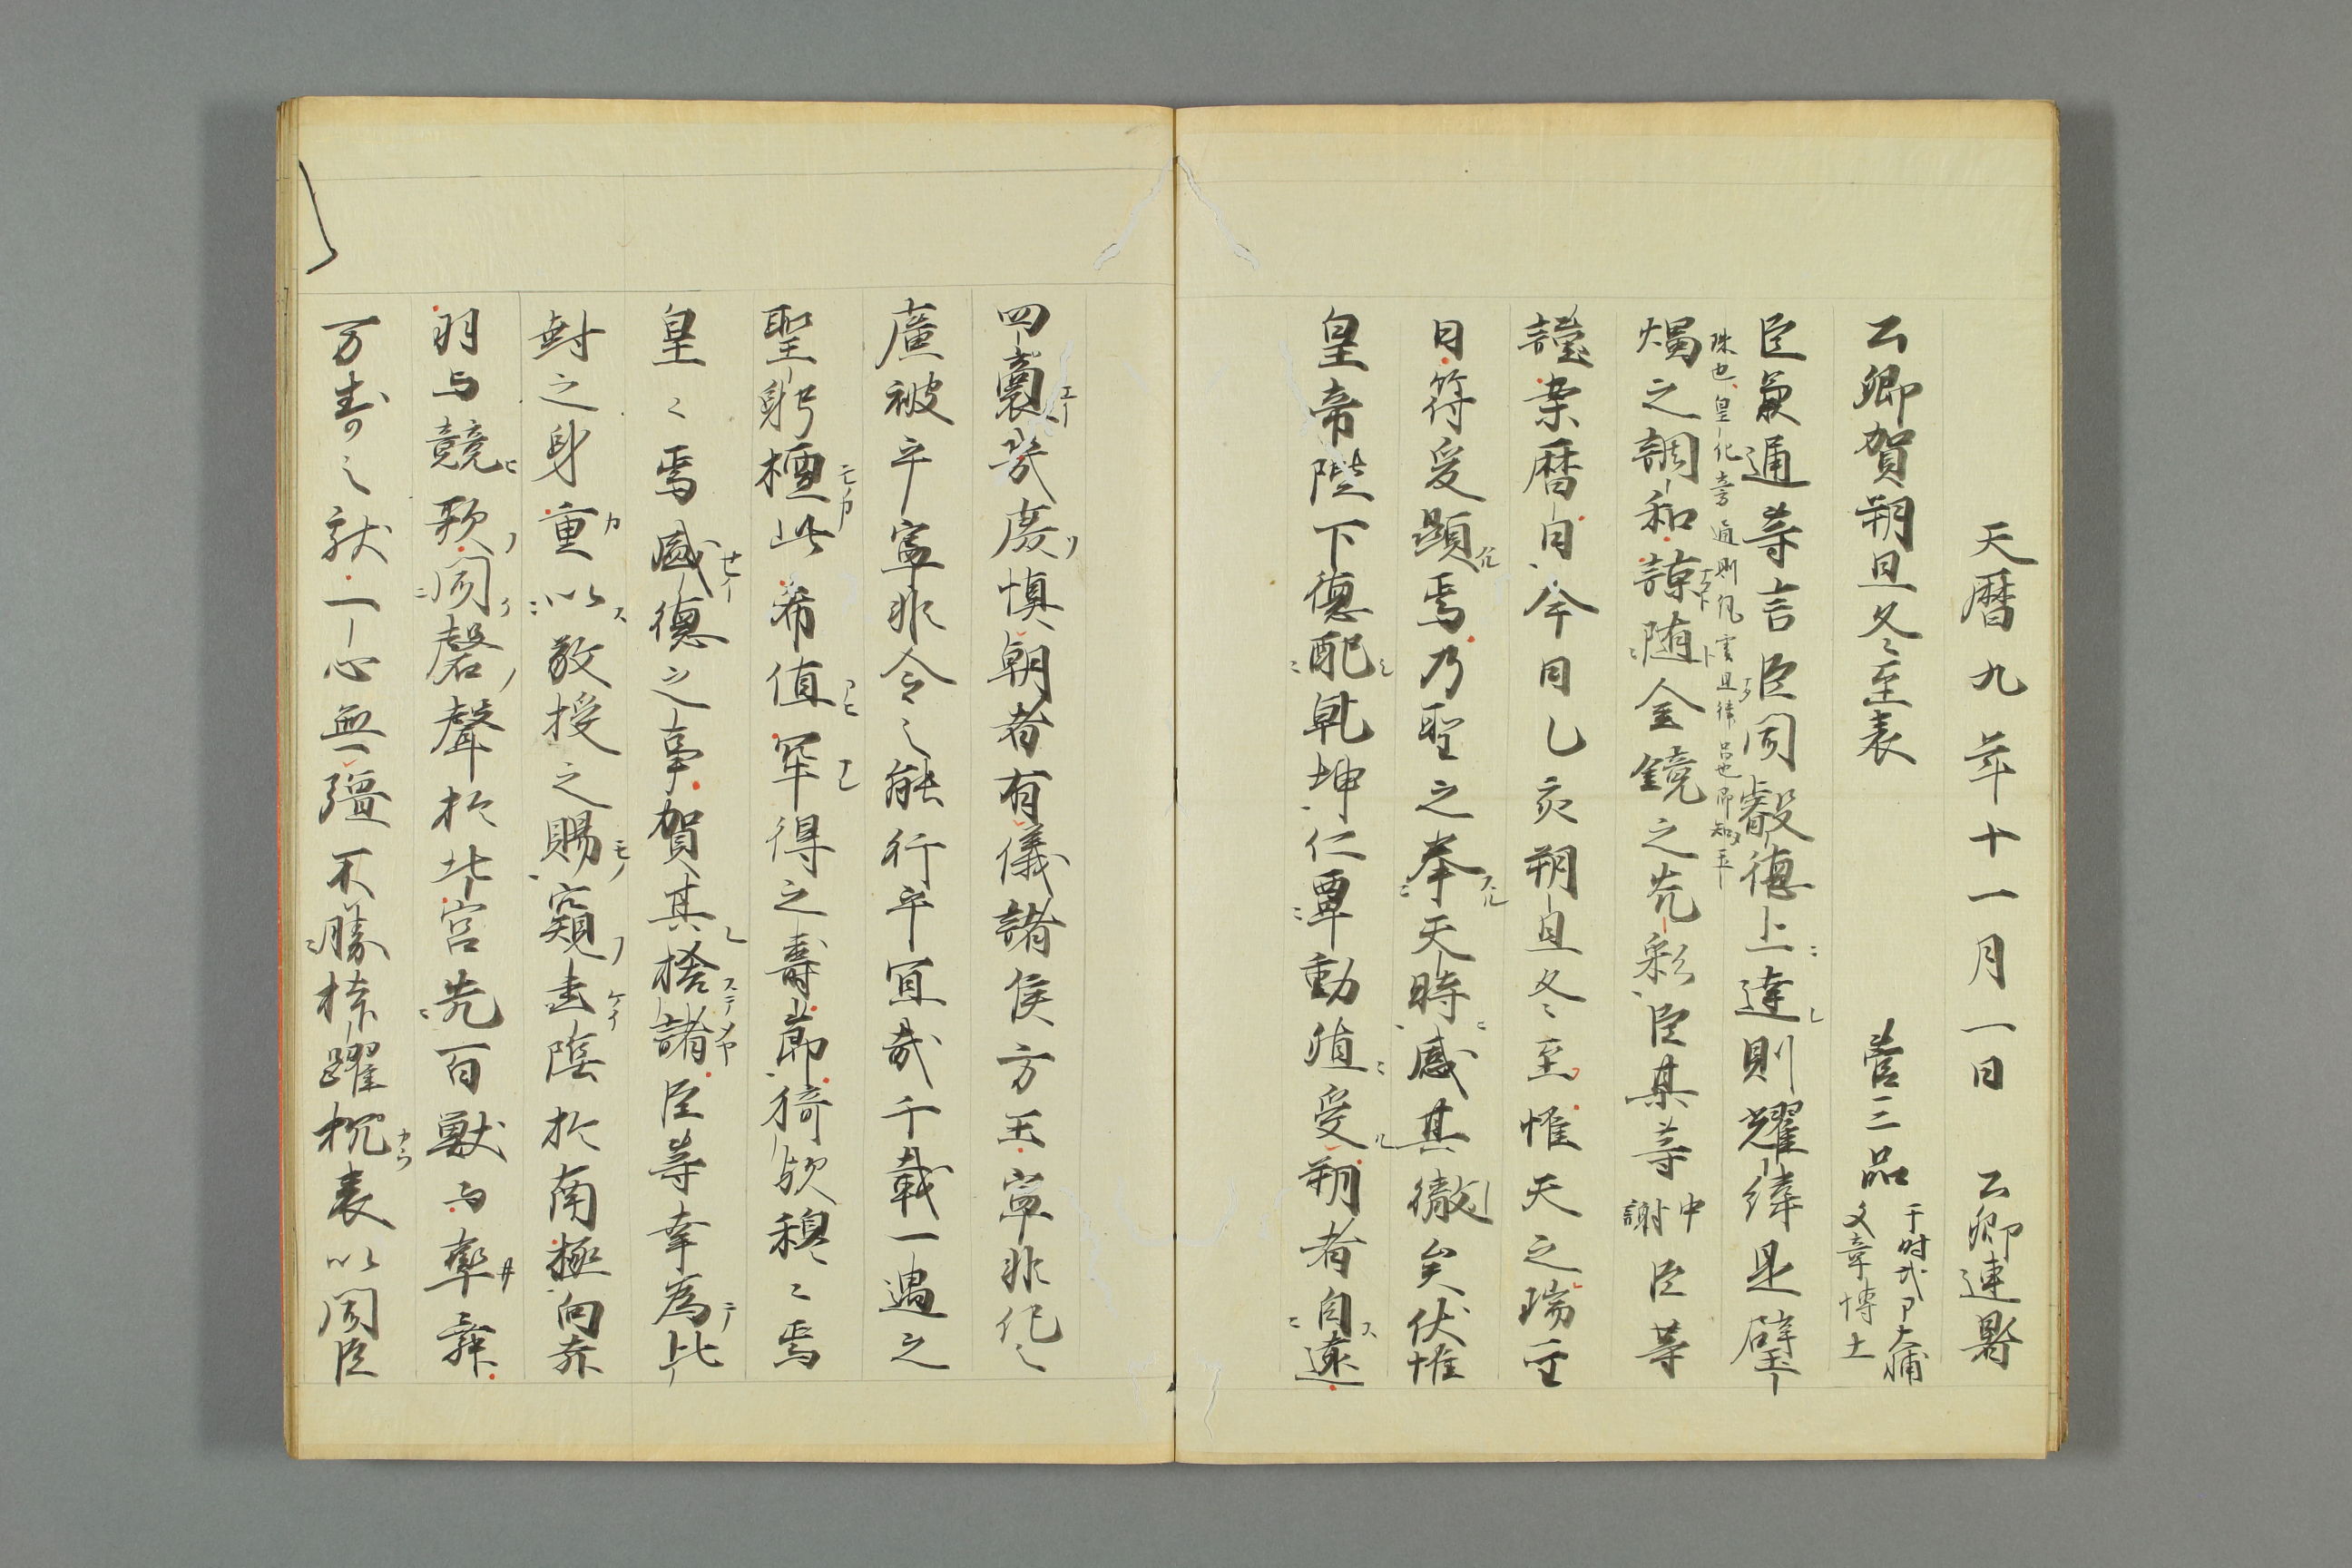 天暦九年十一月一日 公卿連署
公卿賀朔旦冬至表 菅三品 于時式ア大輔 文章博士
臣象通等言臣聞叡德上達則耀緯是璧
珠也皇化旁通則風雲且律呂也即知玉
燭之調和諒随金鏡之光彩臣某等 中謝 臣等
謹案暦自今月乙亥朔旦冬至惟天之瑞至
日符爰顕焉乃聖之奉天時感其徹矣伏惟
皇帝陛下德配乾坤仁覃動殖受朔者自遠
四裔慶慎朝者有儀諸侯方玉寧非化之
廣被乎寧非令之能行乎宜哉千載一遇之
聖躬此希値罕得之壽節猗欤穆々焉
皇々焉盛德之事賀其捨諸臣等幸為此
封之身重以敬授之賜窺圭陰於南極向奔
羽与競歌聞磬聲於北宮先百獣与率舞
万壽之献一心無彊不勝抃躍抗表以聞臣